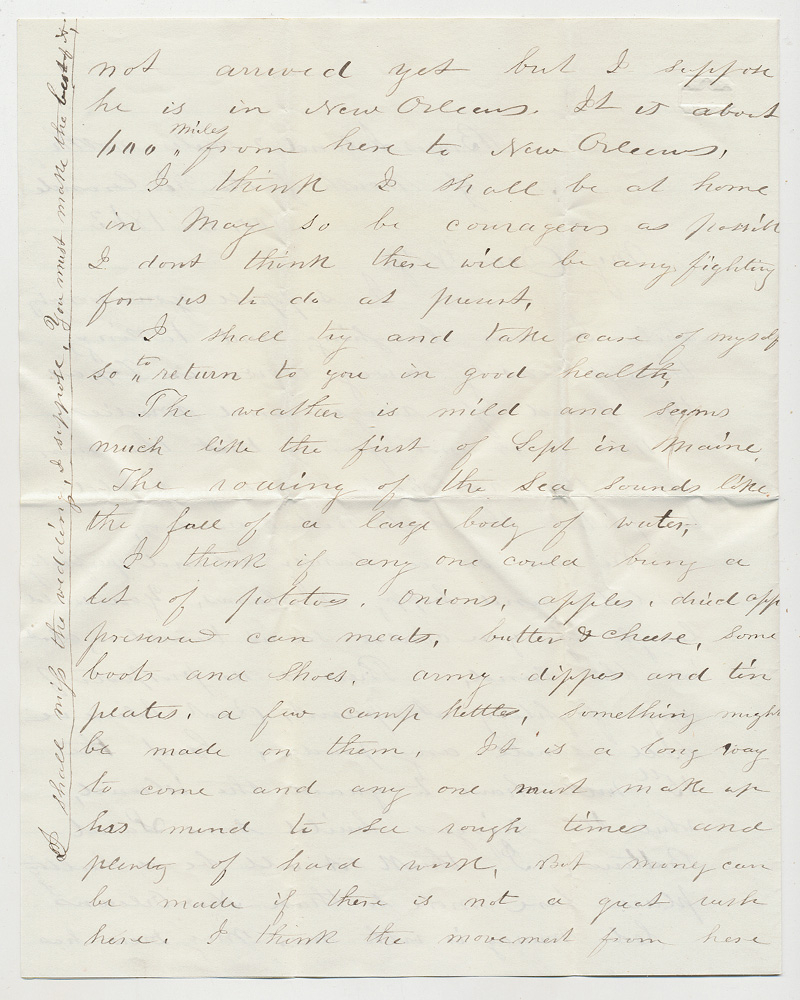 not arrived yet but I suppose
he is in New Orleans. It is about
600 " miles from here to New Orleans,
I think I shall be at home
in May so be courageous as possibl
I dont think there will be any fighting
for us to do at present,
I shall try and take care of myself
so " to return to you in good health,
The weather is mild and seems
much like the first of Sept in Maine.
The roaring of the Sea sounds like
the fall of a large body of water,
I think if any one could bring a
lot of potatoes, onions, apples, dried app
preserved can meats, butter & cheese, some
boots and shoes, army dippes and tin
plates, a few camp kettles, something might
be made on them. It is a long way
to come and any one must make up
his mind to see rough times and
plenty of hard work, But money can
be made if there is not a great rush
here. I think the movement from here
I shall miss the wedding, I suppose. You must make the best of it,